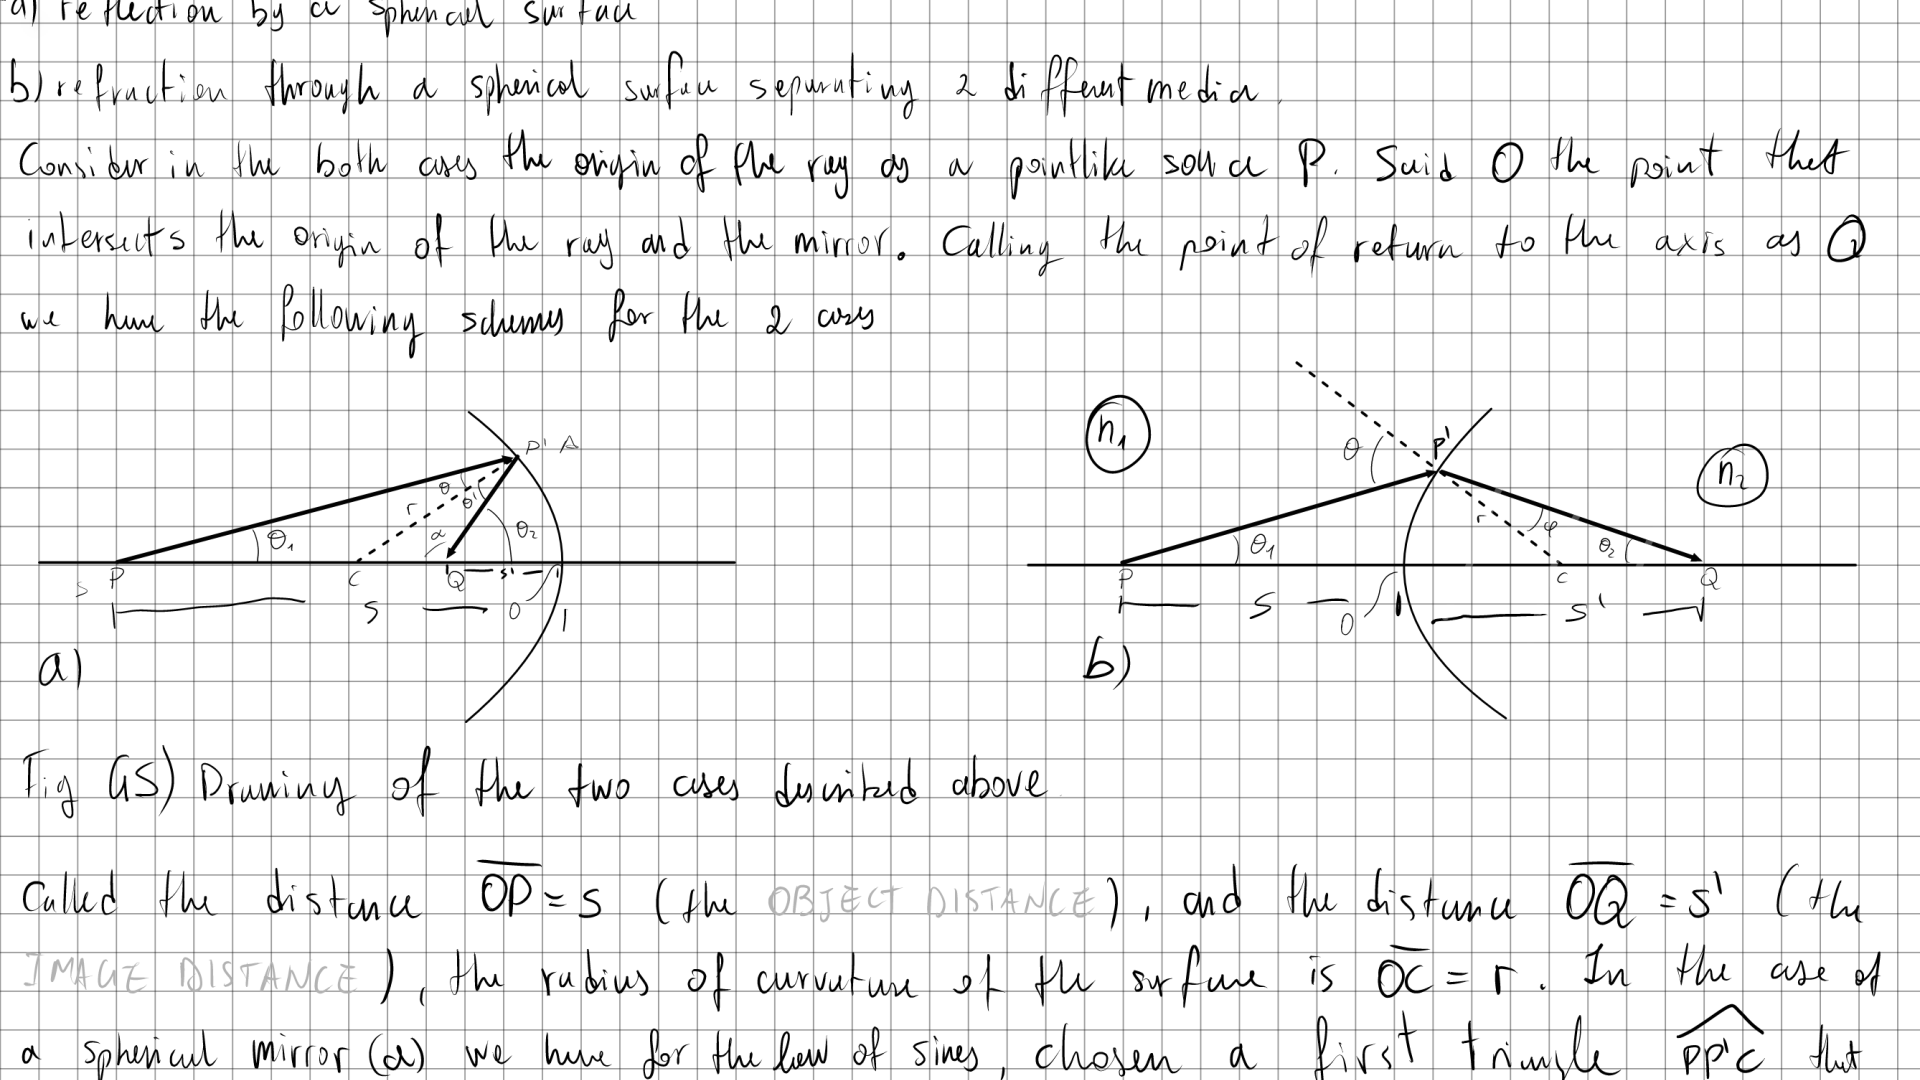 a) reflection by a spherical surface
b) refraction through a spherical surface separating 2 different media.
Consider in the both cases the origin of the ray as a pointlike source P. Said O the point that
intersects the origin of the ray and the mirror. Calling the point of return to the axis as Q
we have the following schemes for the 2 cases
P' A
θ θ' r α θ₁ θ₂
S P C Q s' O
S
a)
n₁ n₂
θ P'
r φ θ₁ θ₂
P C Q
S O S'
b)
Fig (GS) Drawing of the two cases described above
Called the distance OP = s (the OBJECT DISTANCE), and the distance OQ = s' (the
IMAGE DISTANCE), the radius of curvature of the surface is OC = r. In the case of
a spherical mirror (a) we have for the law of sines, chosen a first triangle PP'C that